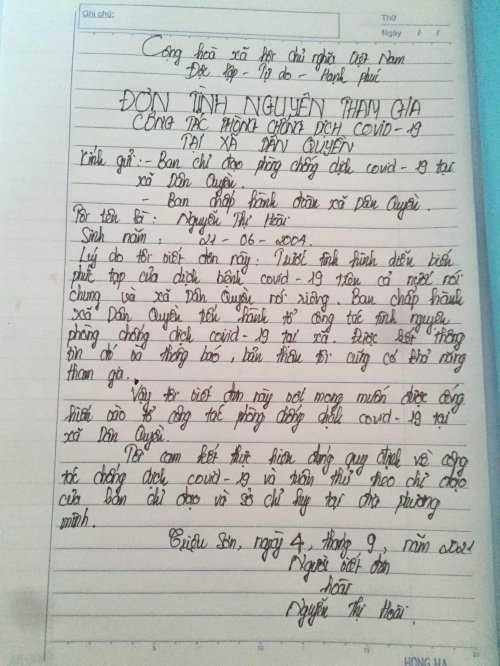 Ghi chú:
Thứ
Ngày / /
Cộng hoà xã hội chủ nghĩa Việt Nam
Độc lập - Tự do - Hạnh phúc
ĐƠN TÌNH NGUYỆN THAM GIA
CÔNG TÁC PHÒNG CHỐNG DỊCH COVID-19
TẠI XÃ DÂN QUYỀN
Kính gửi: - Ban chỉ đạo phòng chống dịch covid-19 tại
xã Dân Quyền.
- Ban chấp hành đoàn xã Dân Quyền.
Tôi tên là: Nguyễn Thị Hoài
Sinh năm: 21-06-2004.
Lý do tôi viết đơn này: Trước tình hình diễn biến
phức tạp của dịch bệnh covid-19 trên cả nước nói
chung và xã Dân Quyền nói riêng. Ban chấp hành
xã Dân Quyền tiến hành tổ công tác tình nguyện
phòng chống dịch covid-19 tại xã. Được biết thông
tin đó và thông báo, bản thân tôi cũng có khả năng
tham gia.
Vậy tôi viết đơn này với mong muốn được cống
hiến vào tổ công tác phòng chống dịch covid-19 tại
xã Dân Quyền.
Tôi cam kết thực hiện đúng quy định về công
tác chống dịch covid-19 và tuân thủ theo chỉ đạo
của ban chỉ đạo và sở chỉ huy tại địa phương
mình.
Triệu Sơn, ngày 4, tháng 9, năm 2021
Người viết đơn
Hoài
Nguyễn Thị Hoài.
5 10 15 20
HONG HA